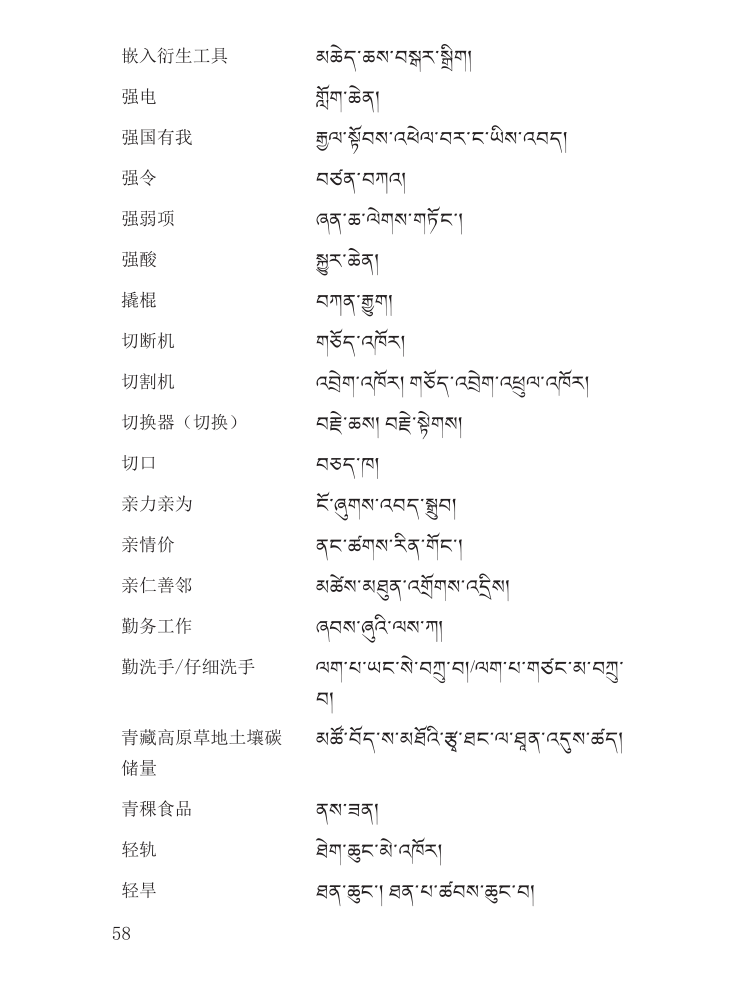 嵌入衍生工具 མཆེད་ཆས་བསྒར་སྒྲིག།
强电 གློག་ཆེན།
强国有我 རྒྱལ་སྟོབས་འཕེལ་བར་ང་ཡིས་འབད།
强令 བཙན་བཀའ།
强弱项 ཞན་ཆ་ལེགས་གཏོང་།
强酸 སྐྱུར་ཆེན།
撬棍 བཀན་རྒྱུག།
切断机 གཅོད་འཁོར།
切割机 འབྲེག་འཁོར། གཅོད་འབྲེག་འཕྲུལ་འཁོར།
切换器（切换） བརྗེ་ཆས། བརྗེ་སྟེགས།
切口 བཅད་ཁ།
亲力亲为 ངོ་ཞུགས་འབད་སྒྲུབ།
亲情价 ནང་ཚགས་རིན་གོང་།
亲仁善邻 མཚེས་མཐུན་འགྲོགས་འདྲིས།
勤务工作 ཞབས་ཞུའི་ལས་ཀ།
勤洗手/仔细洗手 ལག་པ་ཡང་སེ་བཀྲུ་བ།/ལག་པ་གཙང་མ་བཀྲུ་
བ།
青藏高原草地土壤碳 མཚོ་བོད་ས་མཐོའི་རྩྭ་ཐང་ལ་ཐཱན་འདུས་ཚད།
储量
青稞食品 ནས་ཟན།
轻轨 ཐེག་ཆུང་མེ་འཁོར།
轻旱 ཐན་ཆུང་། ཐན་པ་ཚབས་ཆུང་བ།
58